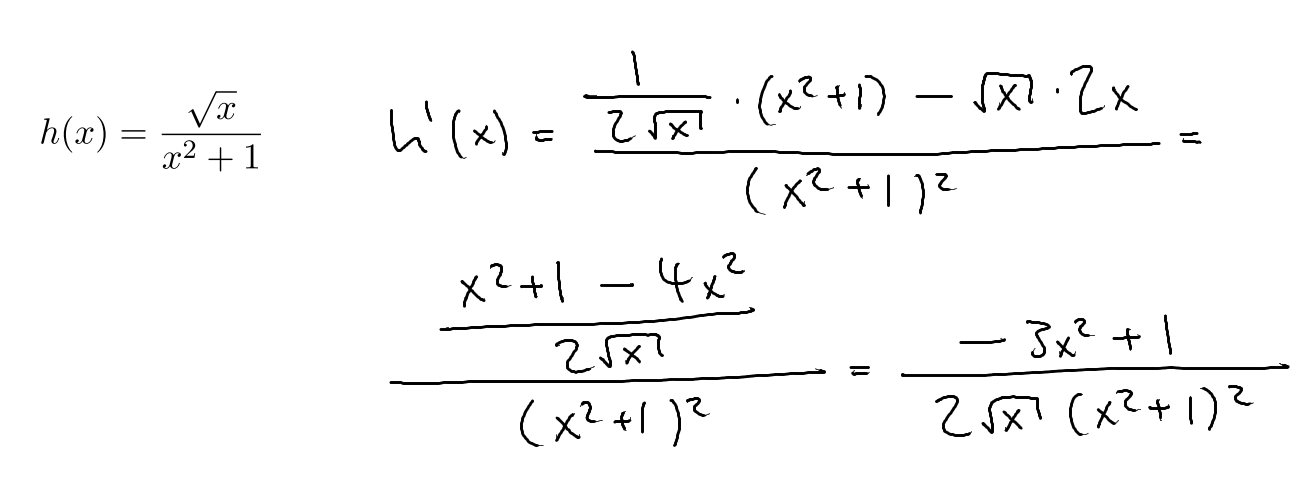 h(x) = \frac{\sqrt{x}}{x^2 + 1}
h'(x) = \frac{\frac{1}{2\sqrt{x}} \cdot (x^2+1) - \sqrt{x} \cdot 2x}{(x^2+1)^2} =
\frac{\frac{x^2+1 - 4x^2}{2\sqrt{x}}}{(x^2+1)^2} = \frac{-3x^2+1}{2\sqrt{x}(x^2+1)^2}